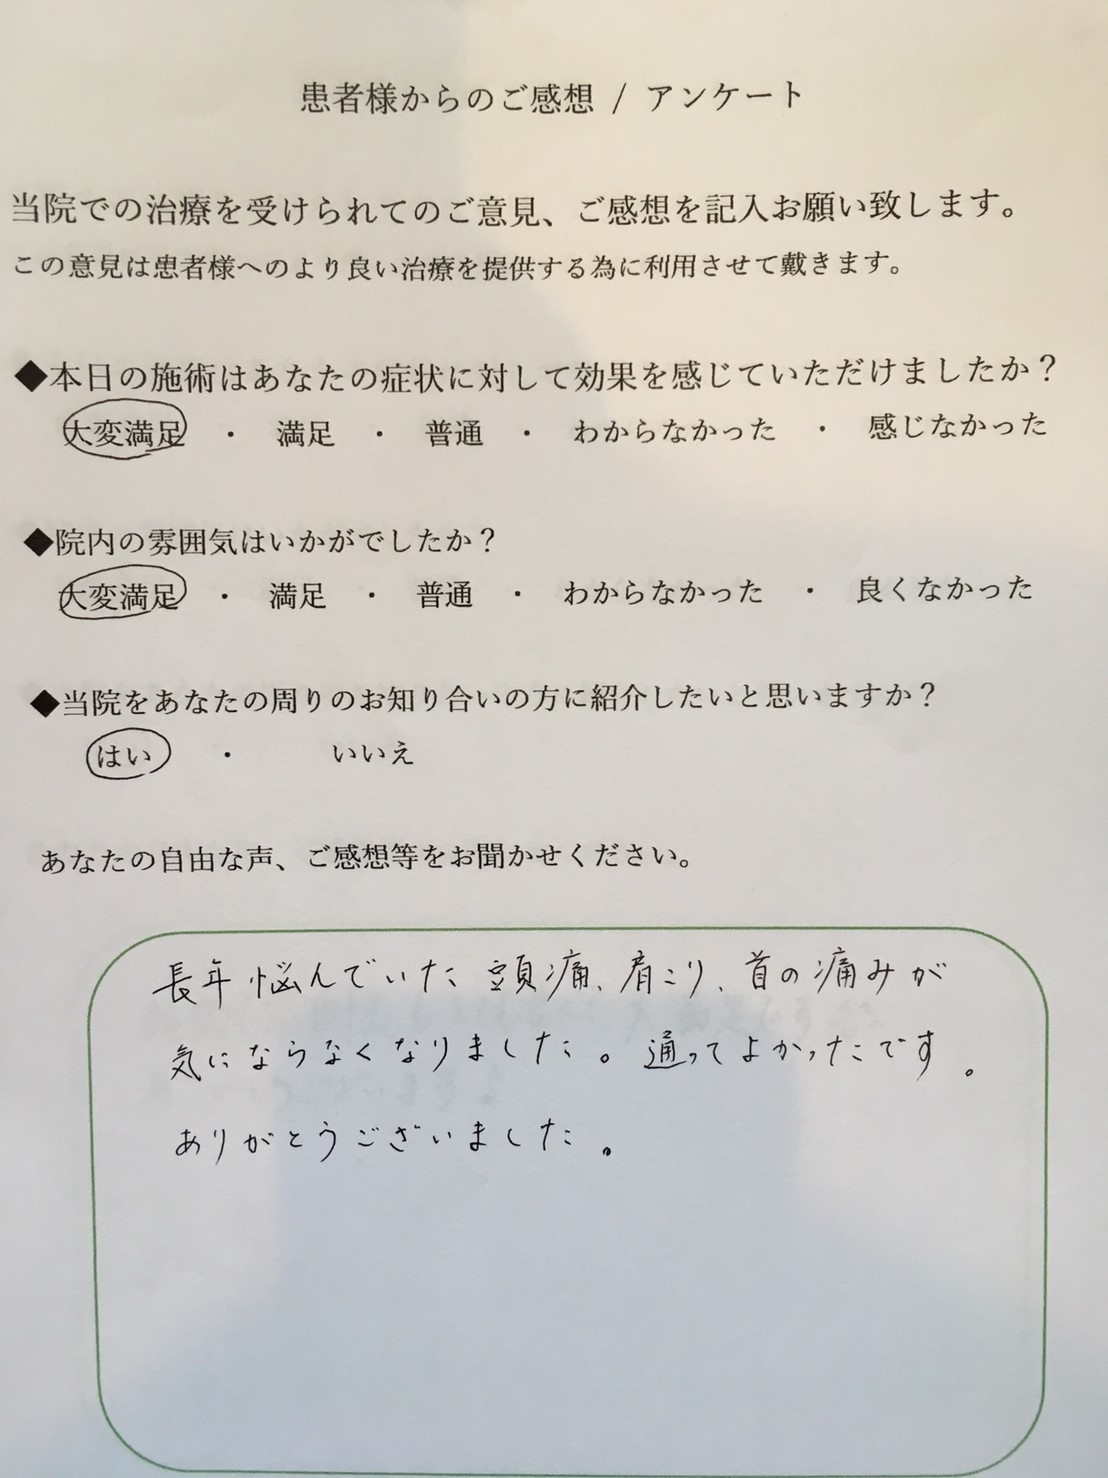 患者様からのご感想 / アンケート
当院での治療を受けられてのご意見、ご感想を記入お願い致します。
この意見は患者様へのより良い治療を提供する為に利用させて戴きます。
◆本日の施術はあなたの症状に対して効果を感じていただけましたか？
大変満足 ・ 満足 ・ 普通 ・ わからなかった ・ 感じなかった
◆院内の雰囲気はいかがでしたか？
大変満足 ・ 満足 ・ 普通 ・ わからなかった ・ 良くなかった
◆当院をあなたの周りのお知り合いの方に紹介したいと思いますか？
はい ・ いいえ
あなたの自由な声、ご感想等をお聞かせください。
長年悩んでいた頭痛、肩こり、首の痛みが
気にならなくなりました。通ってよかったです。
ありがとうございました。